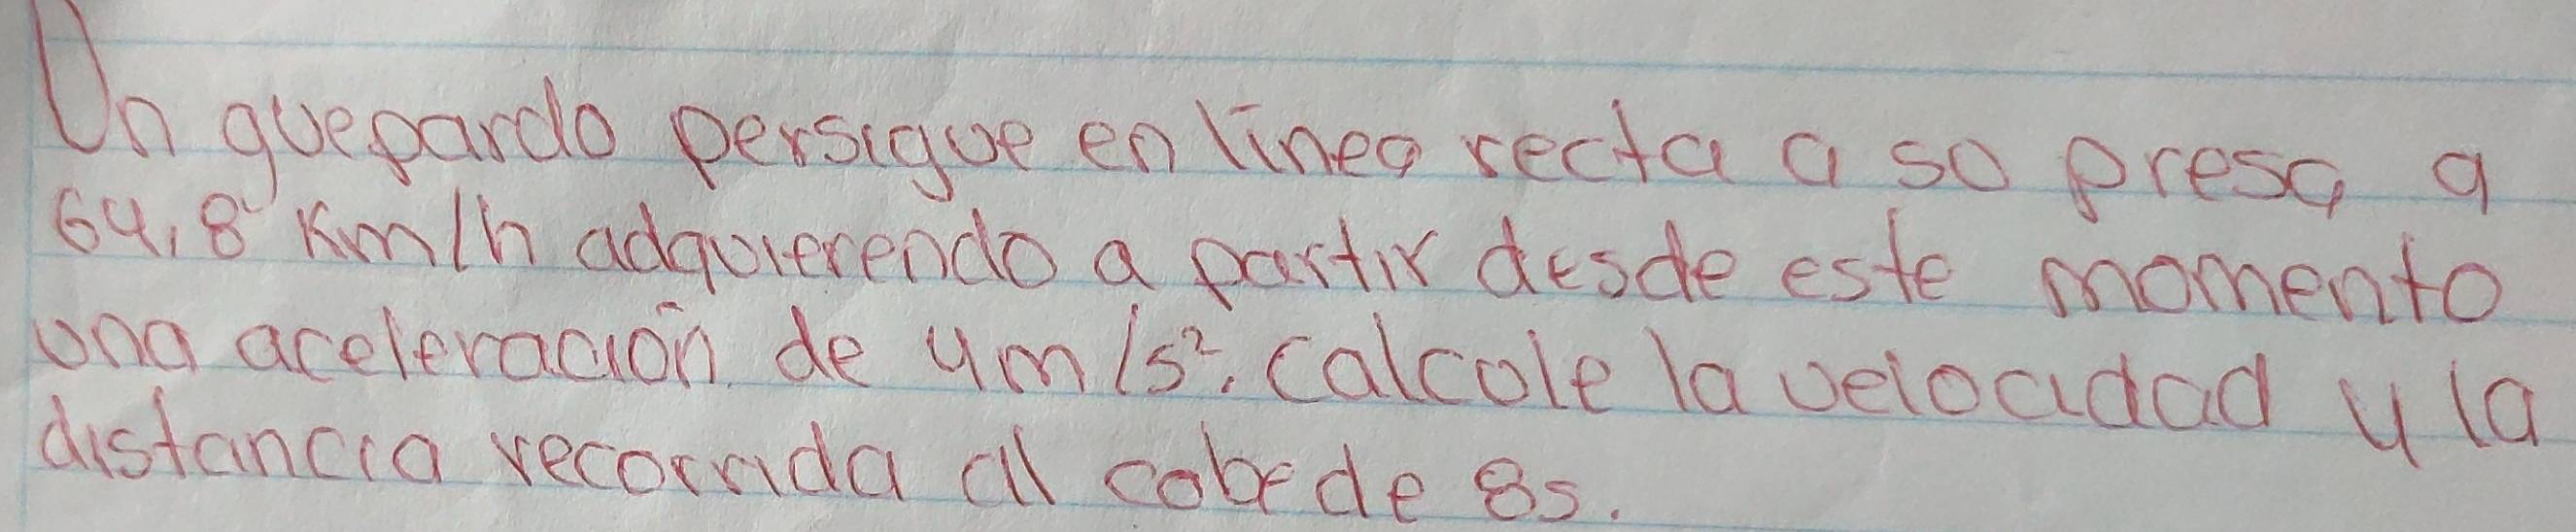 Un guepardo persigue en línea recta a so presa a
64,8 Km/h adquierendo a partir desde este momento
una aceleración de 4m/s². Calcole la velocidad y la
distancia recorrida al cobede 8s.